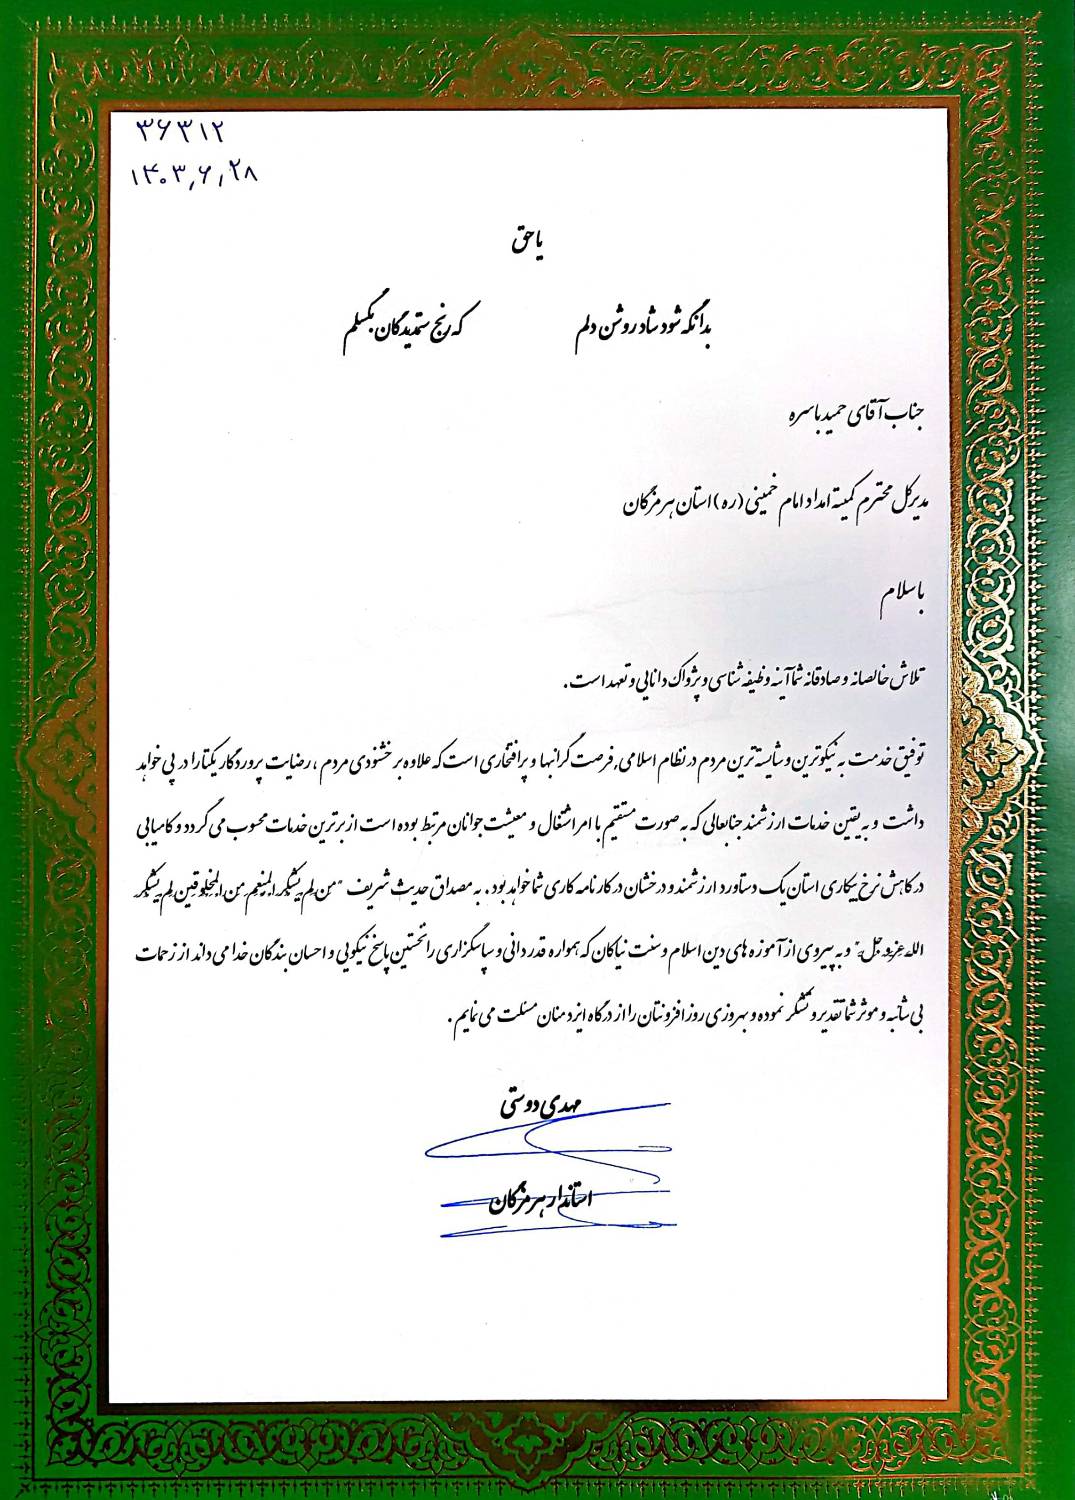 ۳۶۳۱۲
۱۴۰۳,۶,۲۸
یا حق
بدانگه شود شاد روشن دلم که رنج ستمدیدگان بگسلم
جناب آقای حمید باسره
مدیرکل محترم کمیته امداد امام خمینی (ره) استان هرمزگان
باسلام
تلاش خالصانه و صادقانه شما آینه وظیفه شناسی و پژواک دانایی و تعهد است.
توفیق خدمت به نیکوترین و شایسته ترین مردم در نظام اسلامی, فرصت گرانبها و پرافتخاری است که علاوه بر خشنودی مردم، رضایت پروردگار یکتا را در پی خواهد
داشت و به یقین خدمات ارزشمند جنابعالی که به صورت مستقیم با امر اشتغال و معیشت جوانان مرتبط بوده است از برترین خدمات محسوب می گردد و کامیابی
در کاهش نرخ بیکاری استان یک دستاورد ارزشمند و درخشان در کارنامه کاری شما خواهد بود. به مصداق حدیث شریف "من لم یشکر المنعم من المخلوقین لم یشکر
الله عزوجل" و به پیروی از آموزه های دین اسلام و سنت نیاکان که همواره قدردانی و سپاسگزاری را نخستین پاسخ نیکویی و احسان بندگان خدا می داند از زحمات
بی شائبه و موثر شما تقدیر و تشکر نموده و بهروزی روزافزونتان را از درگاه ایزد منان مسئلت می نمایم.
مهدی دوستی
استاندار هرمزگان